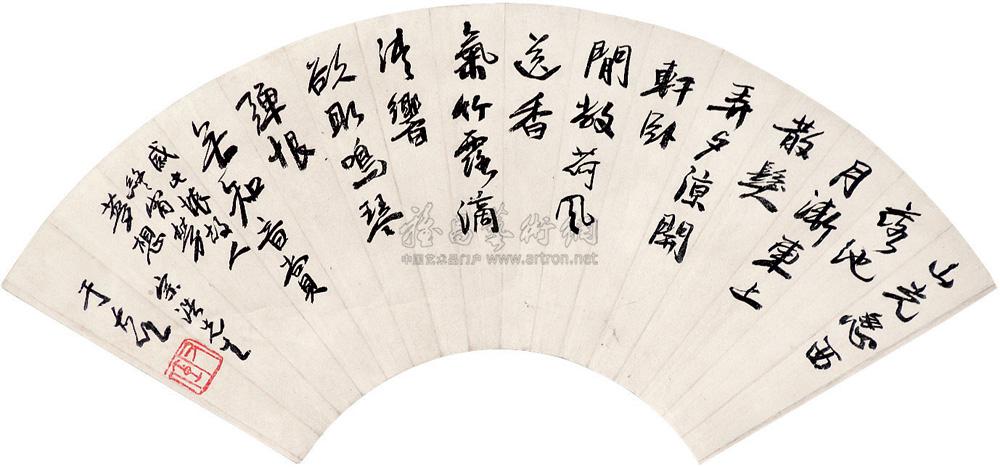 山光忽西
落池
月漸東上
散髮
弄夕涼開
軒卧
閒敞荷風
送香
氣竹露滴
清響
欲取鳴琴
彈恨
無知音賞
感此懷故人
終宵勞
夢想
宗浩先生
于右任
右任
雅昌藝術網
中国艺术品门户 www.artron.net